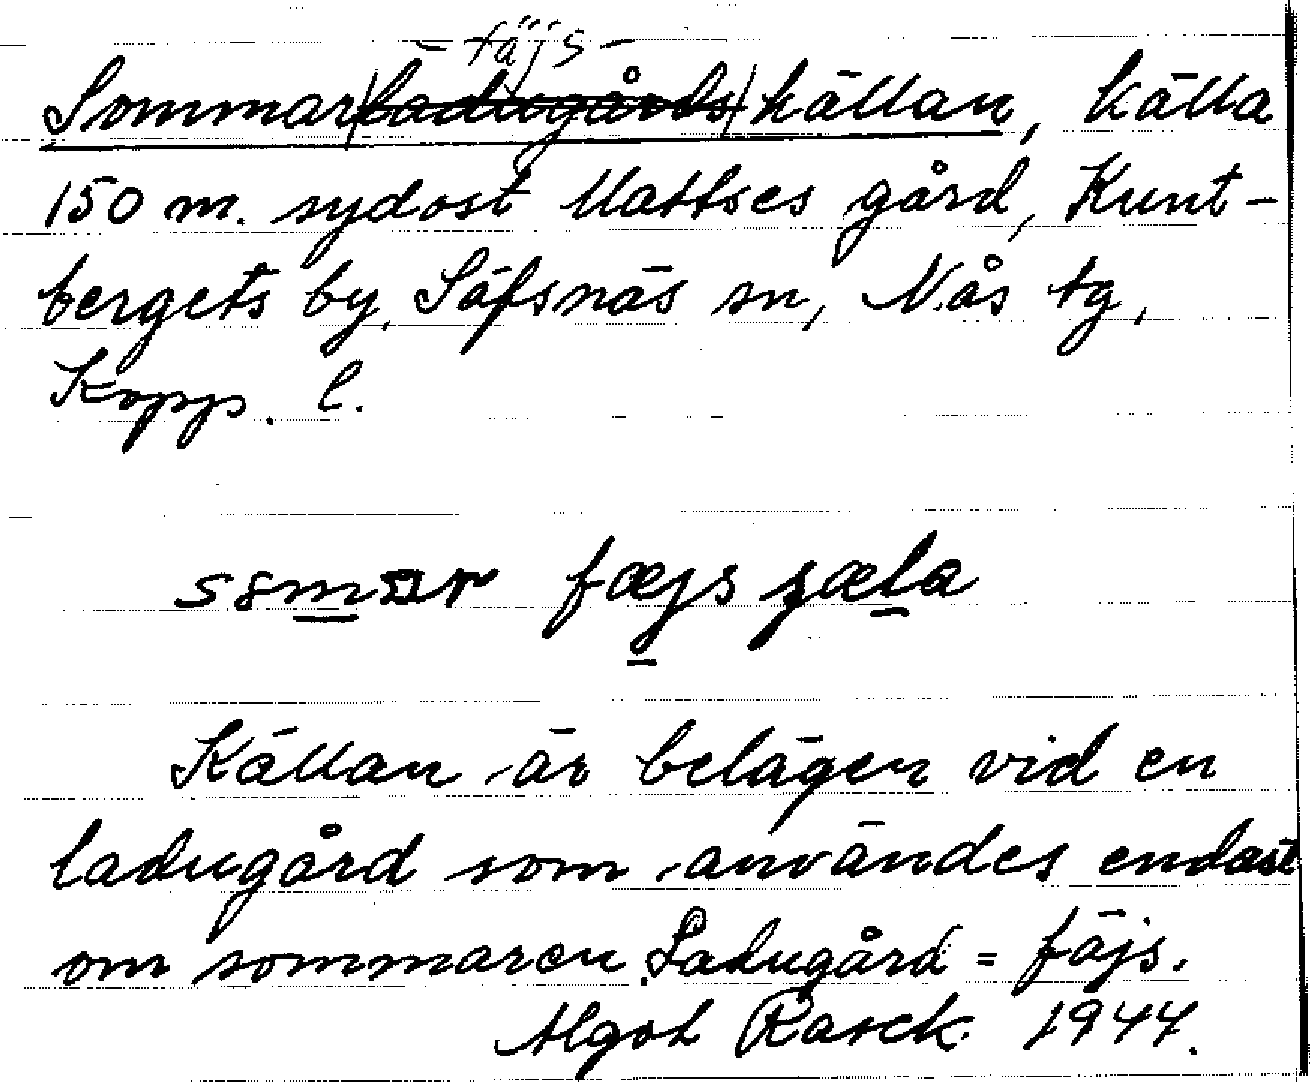 - fäjs -
Sommarladugårdskällan, källa
150 m. sydost Mattses gård, Kunt-
bergets by, Säfsnäs sn, Nås tg,
Kopp. l.
fæjs
Källan är belägen vid en
ladugård som användes endast
om sommaren. Ladugård = fäjs.
Algot Rasck. 1944.